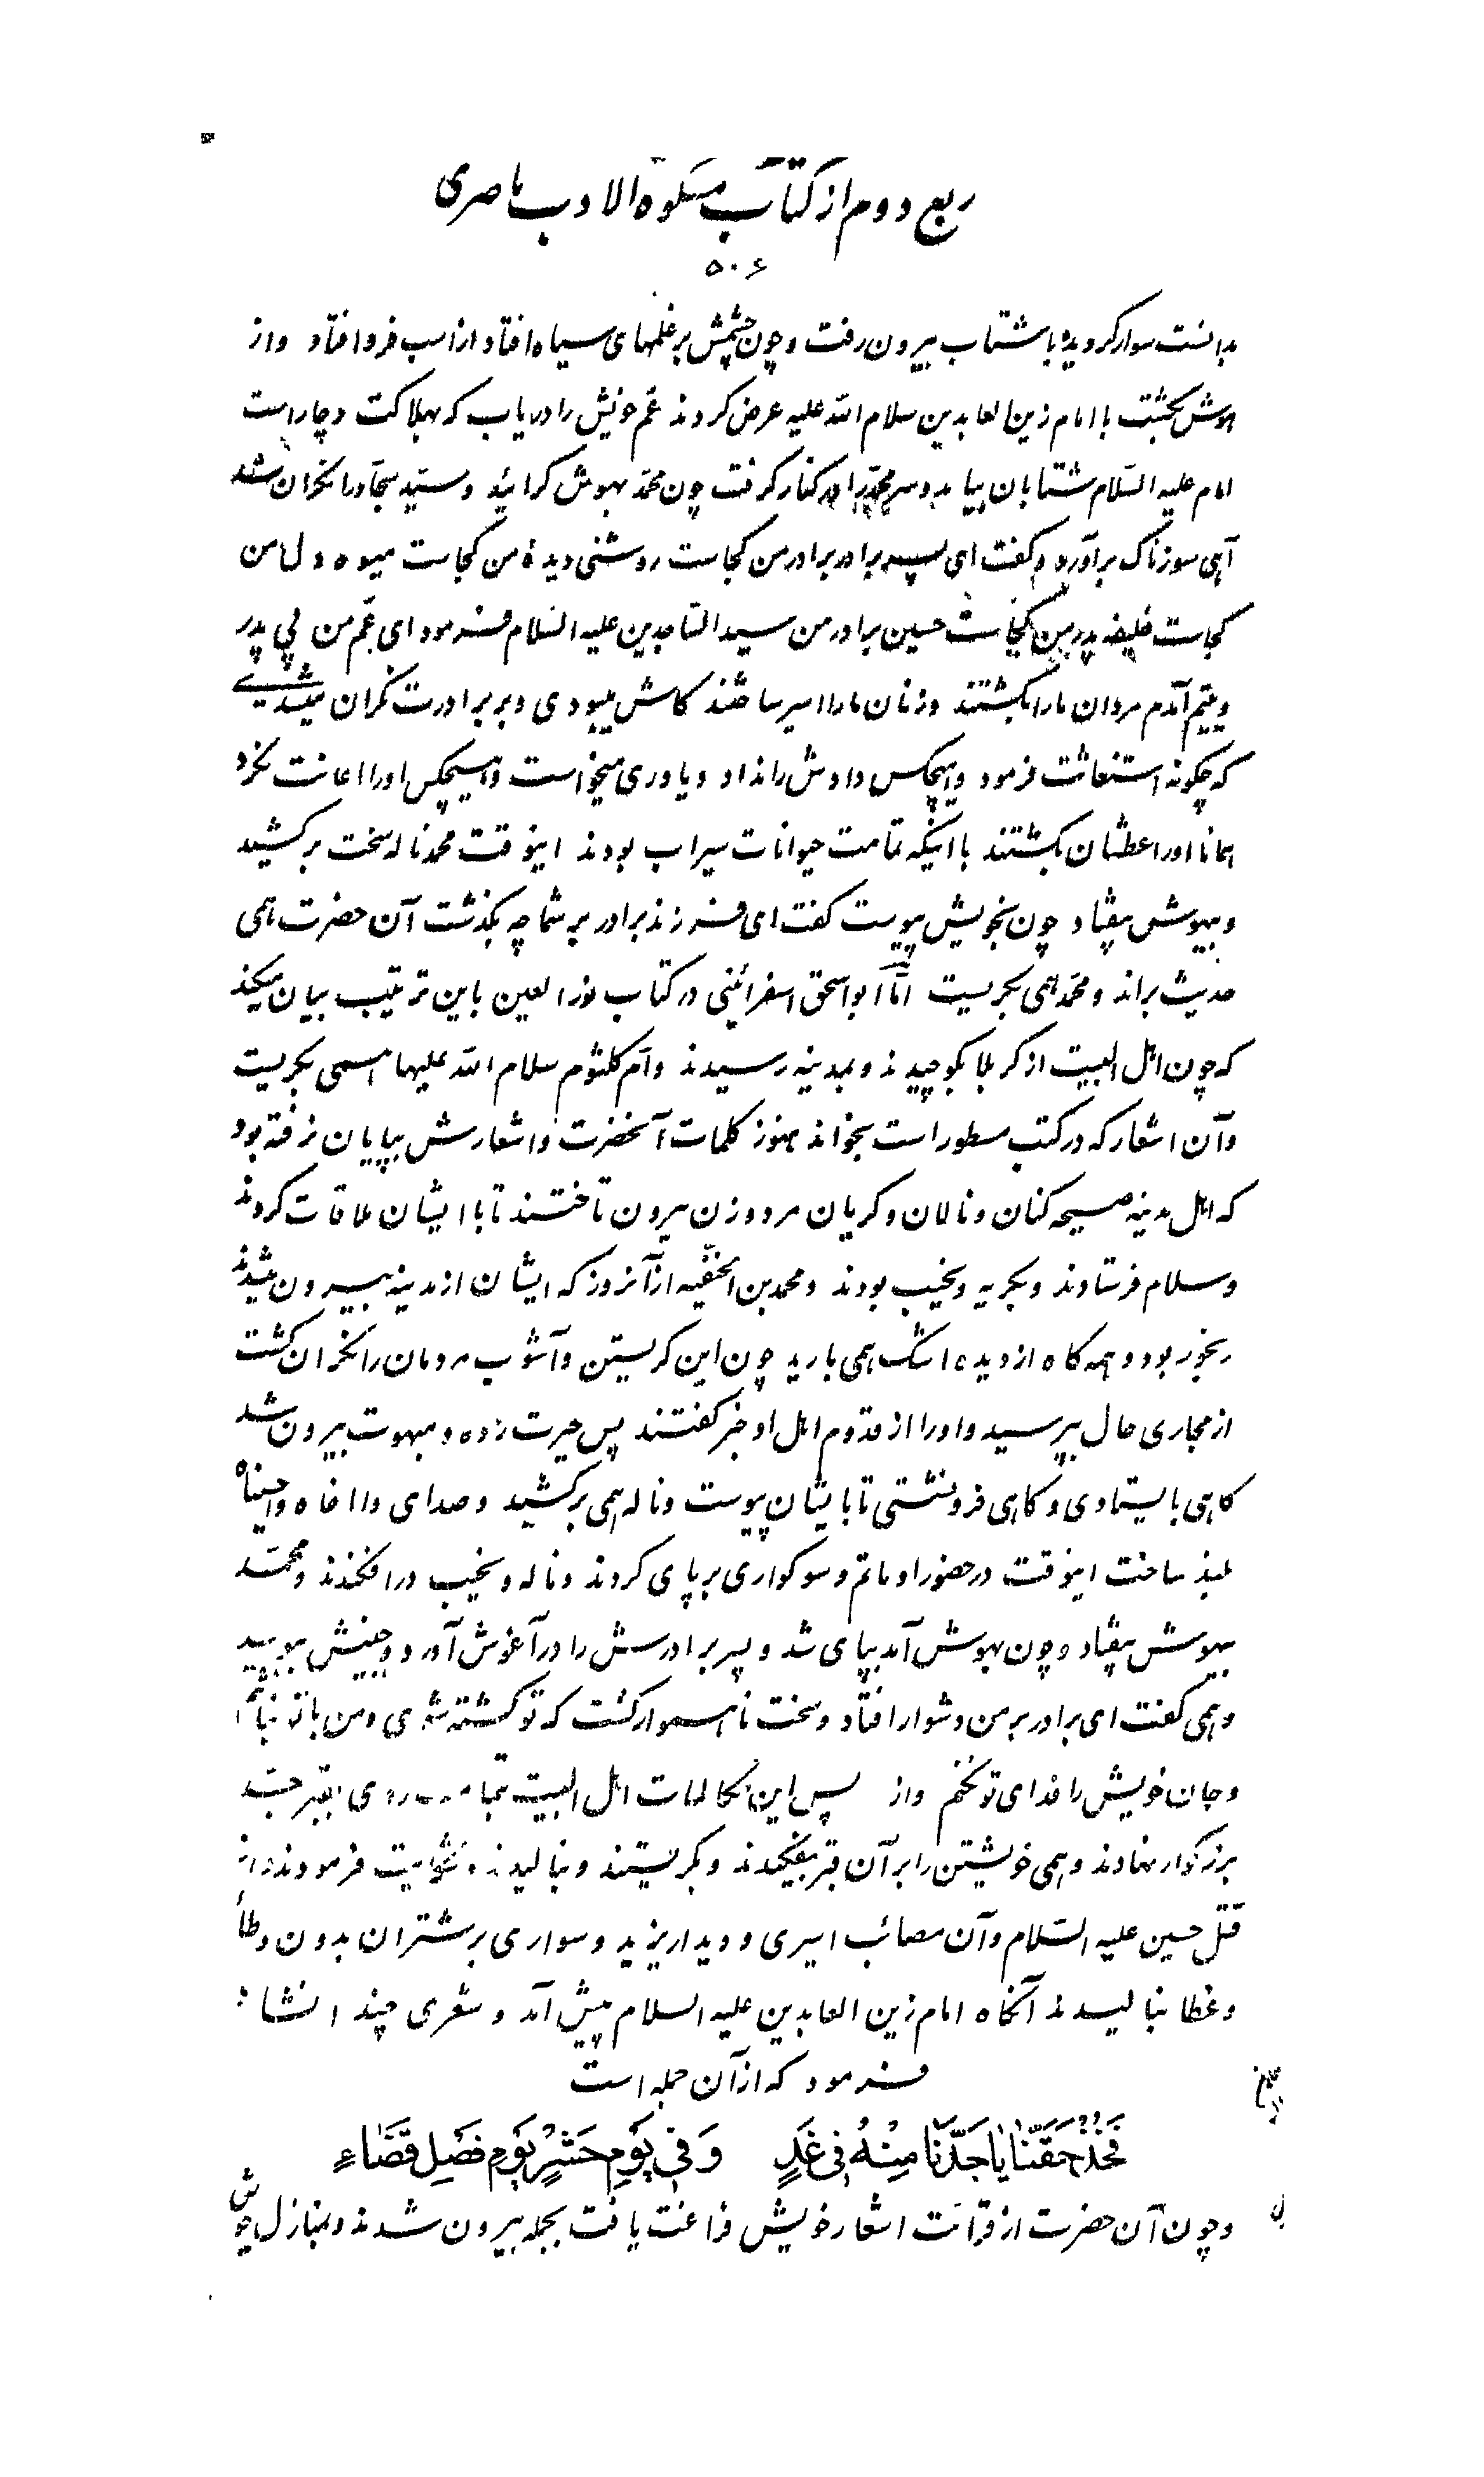 ربع دوم از کتاب مشکوة الادب ناصری
۵۰۶
بدانست سوار گردیده با شتاب بیرون رفت و چون چشمش بر علمهای سیاه افتاد از اسب فرو افتاد و از
هوش بگشت با امام زین العابدین سلام الله علیه عرض کردند عم خویش را دریاب که بهلاکت دچار است
امام علیه السلام شتابان بیامد و سر محمد را در کنار گرفت چون محمد بهوش گرائید و سید سجاد را نگران شد
آهی سوزناک برآورد و گفت ای پسر برادر برادر من کجاست روشنی دیدهٔ من کجاست میوه دل من
کجاست خلیفه پدر من کجاست حسین برادر من سید الساجدین علیه السلام فرمود ای عم من بی پدر
و یتیم آمدم مردان ما را بکشتند و زنان ما را اسیر ساختند کاش میبودی و بر برادرت نگران میشدی
که چگونه استغاثت فرمود و هیچکس دادش را نداد و یاوری میخواست و هیچکس او را اعانت نکرد
همانا او را عطشان بکشتند با اینکه تمامت حیوانات سیراب بودند اینوقت محمد ناله سخت برکشید
و بیهوش بیفتاد چون بخویش پیوست گفت ای فرزند برادر بر شما چه بگذشت آن حضرت همی
حدیث براند و محمد همی بگریست اما ابو اسحق اسفرائینی در کتاب نور العین باین ترتیب بیان میکند
که چون اهل البیت از کربلا بکوچیدند و بمدینه رسیدند و ام کلثوم سلام الله علیها همی بگریست
و آن اشعار که در کتب مسطور است بخواند هنوز کلمات آنحضرت و اشعارش بپایان نرفته بود
که اهل مدینه صیحه کنان و نالان و گریان مرد و زن بیرون تاختند تا با ایشان ملاقات کردند
و سلام فرستادند و بگریه و نحیب بودند و محمد بن الحنفیه از آنروز که ایشان از مدینه بیرون شدند
رنجور بود و همه گاه از دیده اشک همی بارید چون این گریستن و آشوب مردمان را نگران گشت
از مجاری حال بپرسید و او را از قدوم اهل او خبر گفتند پس حیرت زده و مبهوت بیرون شد
گاهی بایستادی و گاهی فرو نشستی تا بایشان پیوست و ناله همی برکشید و صدای وا اخاه واحسیناه
بلند ساخت اینوقت در حضور او ماتم و سوگواری برپای کردند و ناله و نحیب درافکندند و محمد
بیهوش بیفتاد و چون بهوش آمد بپای شد و پسر برادرش را در آغوش آورد و جبینش ببوسید
و همی گفت ای برادر بر من دشوار افتاد و سخت ناهموار گشت که تو کشته شوی و من با تو نباشم
و جان خویش را فدای تو نکنم و از پس این مکالمات اهل البیت روی بقبر جد
بزرگوار نهادند و همی خویشتن را بر آن قبر بیفکندند و بگریستند و بنالیدند و شکایت فرمودند از
قتل حسین علیه السلام و آن مصائب اسیری و دیدار یزید و سواری بر شتران بدون وطأ
و غطا بنالیدند آنگاه امام زین العابدین علیه السلام پیش آمد و شعری چند انشاء
فرمود که از آن جمله است
فَخُذْ حَقَّنَا يَا جَدَّنَا مِنْهُ فِي غَدٍ وَفِي يَوْمِ حَشْرٍ يَوْمِ فَصْلِ قَضَاءِ
و چون آن حضرت از قرائت اشعار خویش فراغت یافت بجمله بیرون شدند و بمنازل خویش